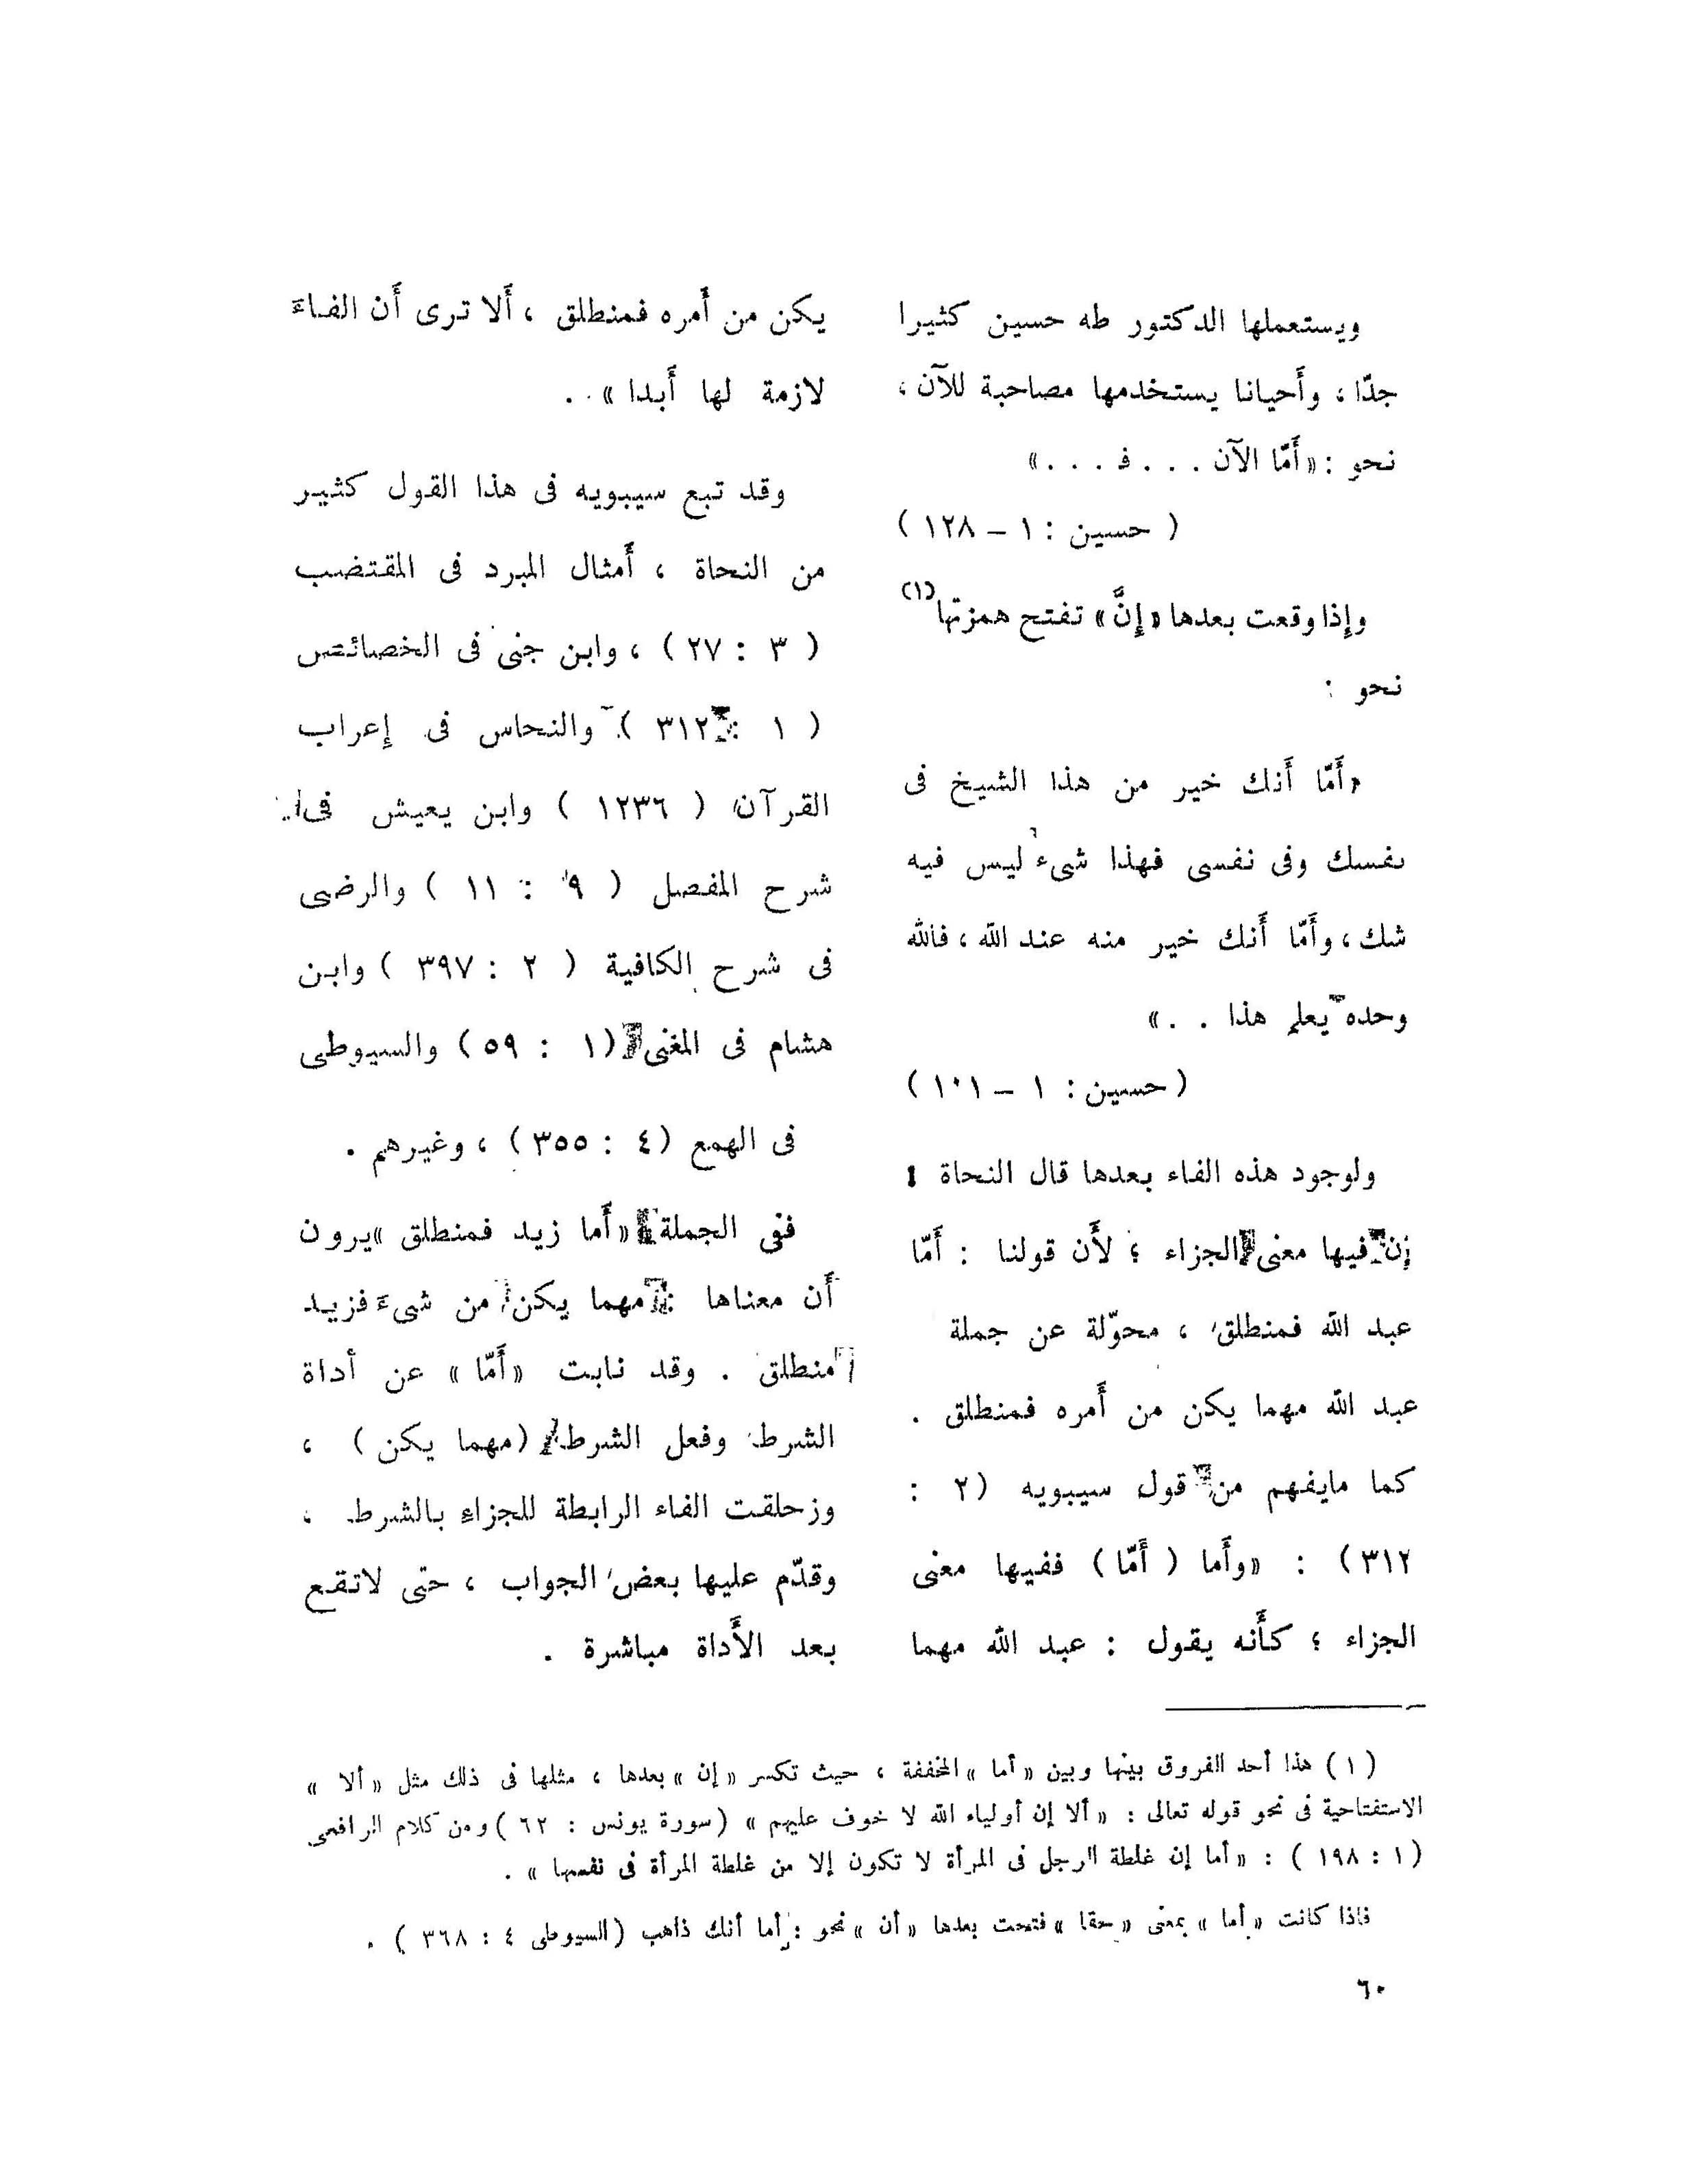 ويستعملها الدكتور طه حسين كثيرا
جدّا ، وأَحيانا يستخدمها مصاحبة للآن ،
نحو : «أَمّا الآن . . . فـ . . . »
( حسين : ١ – ١٢٨ )
وإِذا وقعت بعدها «إِنَّ» تفتح همزتها (١)
نحو :
«أَمّا أَنك خير من هذا الشيخ فى
نفسك وفى نفسى فهذا شىء ليس فيه
شك ، وأَمّا أَنك خير منه عند الله ، فالله
وحده يعلم هذا . . »
( حسين : ١ – ١٠١ )
ولوجود هذه الفاء بعدها قال النحاة :
إن فيها معنى الجزاء ؛ لأَن قولنا : أَمّا
عبد الله فمنطلق ، محوّلة عن جملة
عبد الله مهما يكن من أَمره فمنطلق .
كما مايفهم من قول سيبويه (٢ :
٣١٢) : «وأَما ( أَمّا ) ففيها معنى
الجزاء ؛ كأَنه يقول : عبد الله مهما
يكن من أَمره فمنطلق ، أَلا ترى أَن الفاءَ
لازمة لها أَبدا » .
وقد تبع سيبويه فى هذا القول كثير
من النحاة ، أَمثال المبرد فى المقتضب
( ٣ : ٢٧ ) ، وابن جنى فى الخصائص
( ١ : ٣١٢ ) والنحاس فى إعراب
القرآن ( ١٢٣٦ ) وابن يعيش فى
شرح المفصل ( ٩ : ١١ ) والرضى
فى شرح الكافية ( ٢ : ٣٩٧ ) وابن
هشام فى المغنى (١ : ٥٩ ) والسيوطى
فى الهمع (٤ : ٣٥٥ ) ، وغيرهم .
ففى الجملة «أَما زيد فمنطلق » يرون
أَن معناها : مهما يكن من شىءَ فزيد
منطلق . وقد نابت «أَمّا » عن أداة
الشرط وفعل الشرط (مهما يكن ) ،
وزحلقت الفاء الرابطة للجزاءِ بالشرط ،
وقدّم عليها بعض الجواب ، حتى لاتقع
بعد الأَداة مباشرة .
( ١ ) هذا أحد الفروق بينها وبين « أما » المخففة ، حيث تكسر « إن » بعدها ، مثلها فى ذلك مثل « ألا »
الاستفتاحية فى نحو قوله تعالى : « ألا إن أولياء الله لا خوف عليهم » (سورة يونس : ٦٢ ) ومن كلام الرافعى
( ١ : ١٩٨ ) : « أما إن غلطة الرجل فى المرأة لا تكون إلا من غلطة المرأة فى نفسها » .
فاذا كانت « أما » بمعنى « حقا » فتحت بعدها « أن » نحو : أما أنك ذاهب (السيوطى ٤ : ٣٦٨ ) .
٦٠